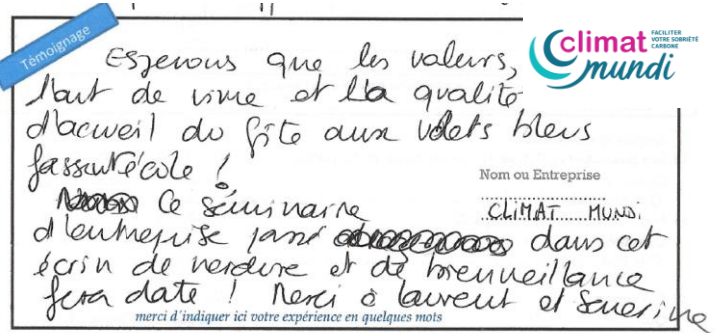 Témoignage
climat mundi
FACILITER
VOTRE SOBRIÉTÉ
CARBONE
Espérons que les valeurs,
l'art de vivre et la qualité
d'accueil du gîte aux volets bleus
fassent école !
Nom ou Entreprise
CLIMAT MUNDI
Ce séminaire
d'entreprise passé dans cet
écrin de verdure et de bienveillance
fera date ! Merci à Laurent et Séverine
merci d'indiquer ici votre expérience en quelques mots